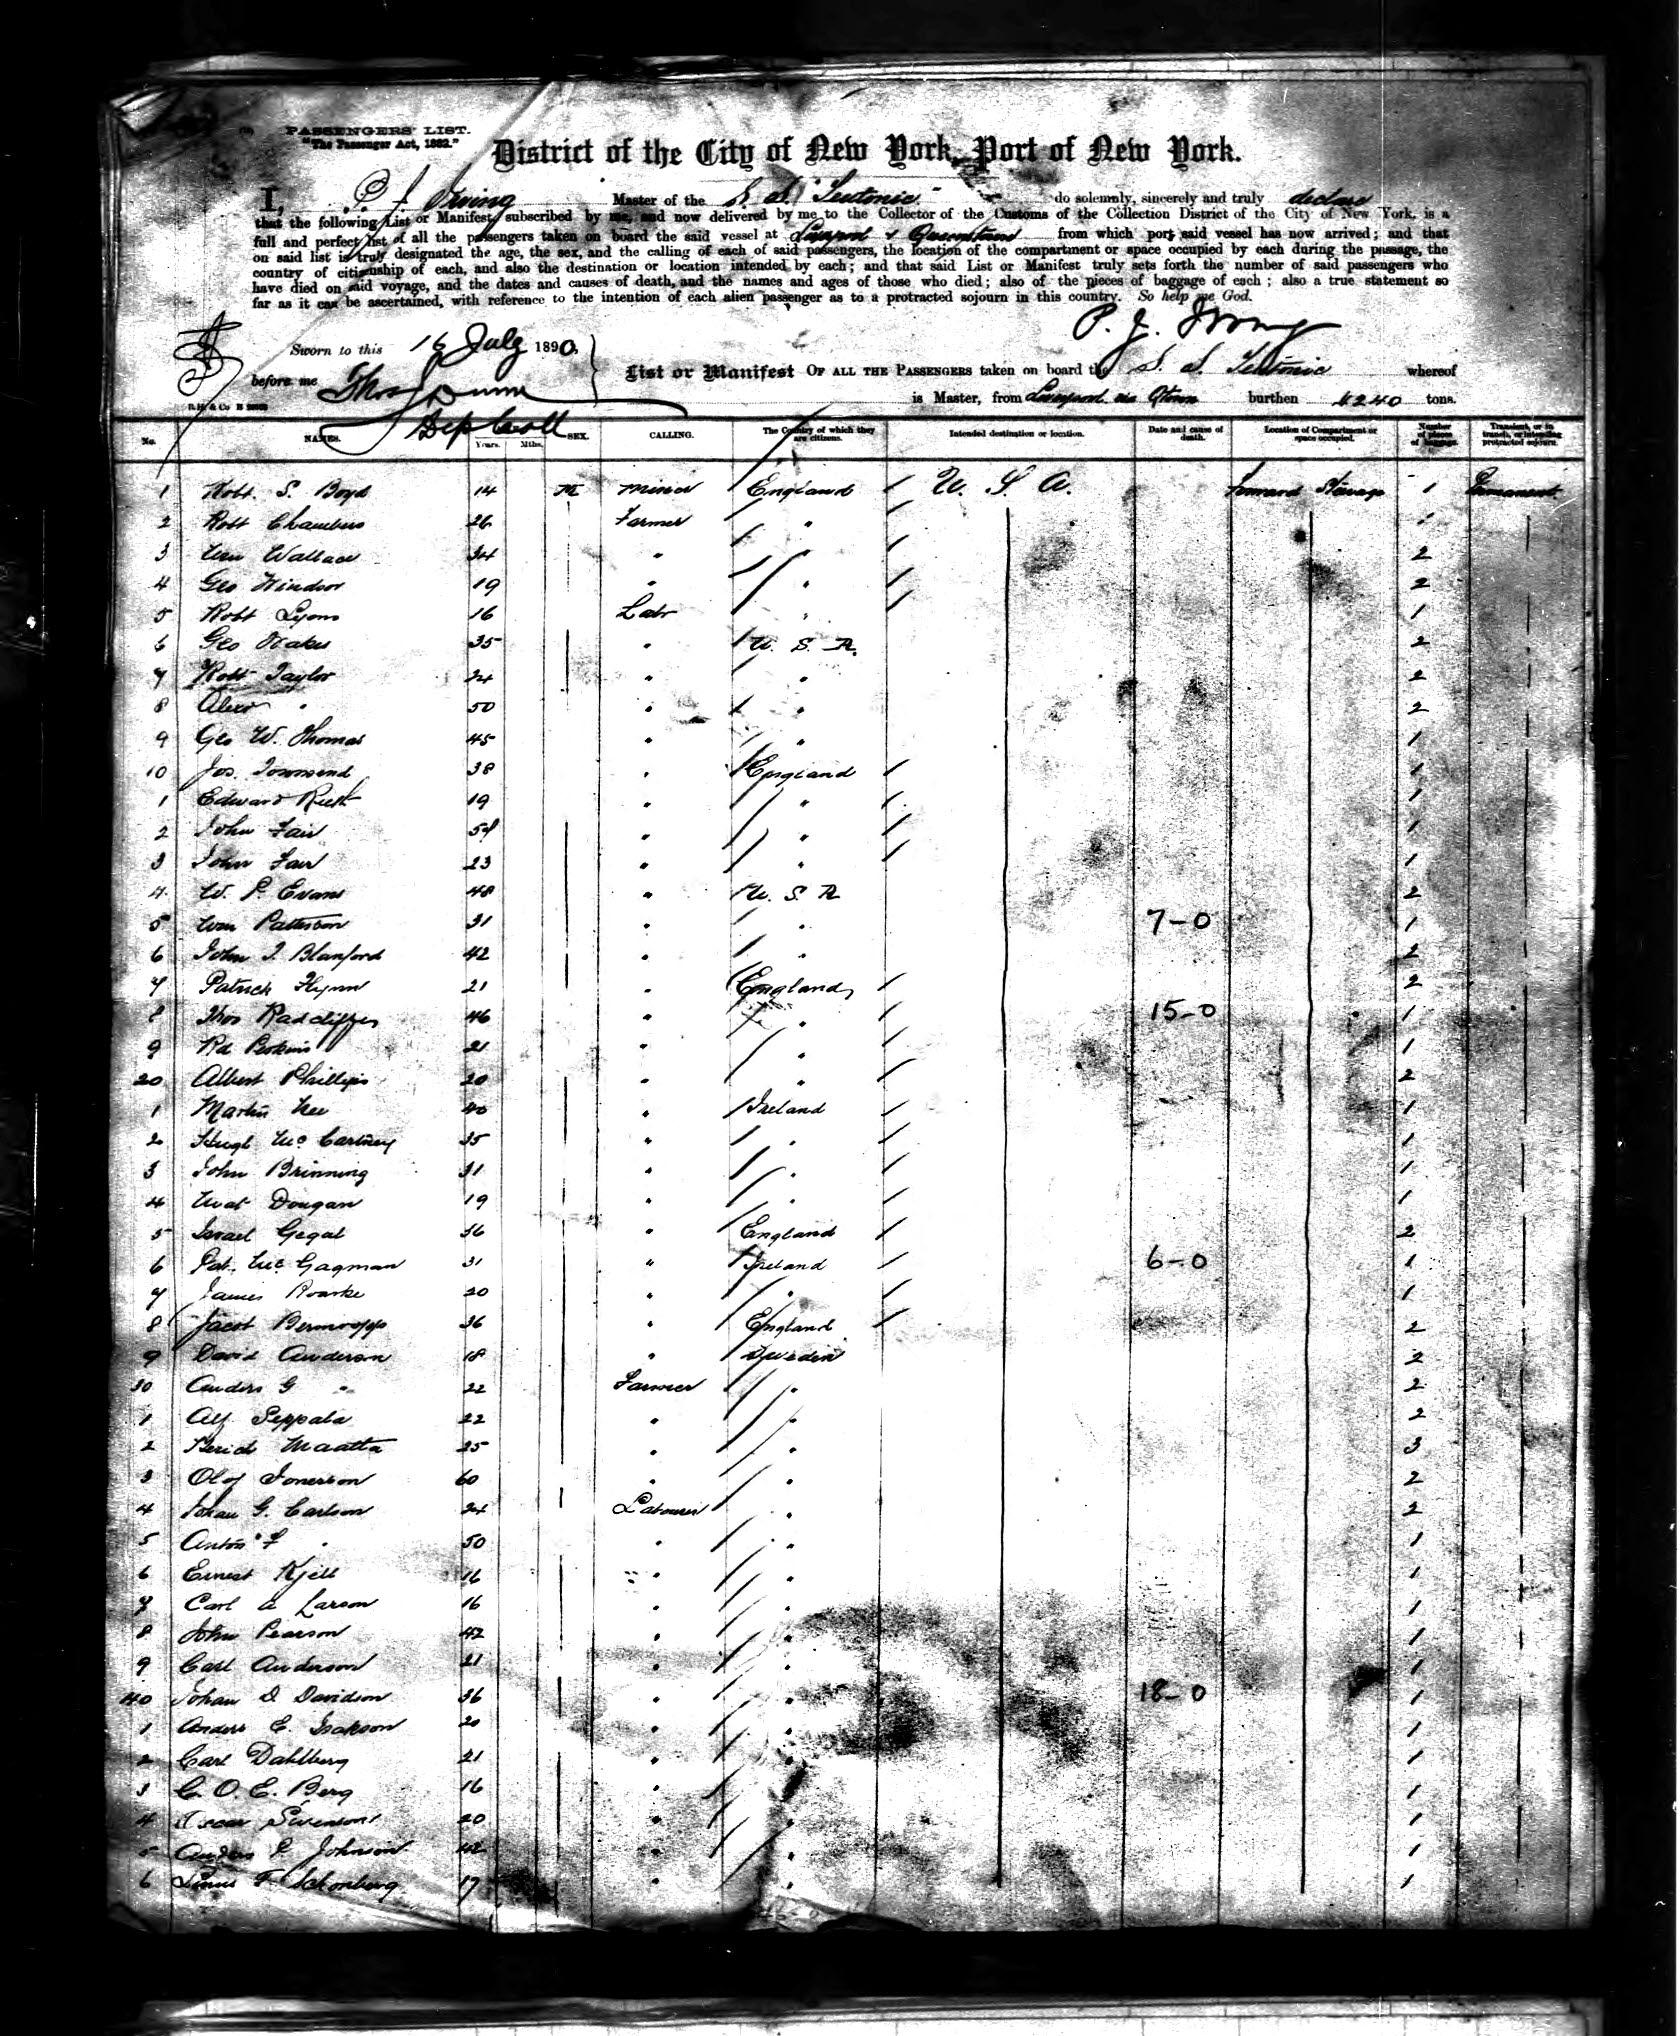 PASSENGERS' LIST.
"The Passenger Act, 1882."
District of the City of New York, Port of New York.
I, P. J. Irving Master of the S. S. "Teutonic" do solemnly, sincerely and truly declare
that the following List or Manifest, subscribed by me, and now delivered by me to the Collector of the Customs of the Collection District of the City of New York, is a
full and perfect list of all the passengers taken on board the said vessel at Liverpool & Queenstown from which port said vessel has now arrived; and that
on said list is truly designated the age, the sex, and the calling of each of said passengers, the location of the compartment or space occupied by each during the passage, the
country of citizenship of each, and also the destination or location intended by each; and that said List or Manifest truly sets forth the number of said passengers who
have died on said voyage, and the dates and causes of death, and the names and ages of those who died; also of the pieces of baggage of each; also a true statement so
far as it can be ascertained, with reference to the intention of each alien passenger as to a protracted sojourn in this country. So help me God.
P. J. Irving
Sworn to this 16 July 1890,
before me Thos Dunn
Dep Coll
List or Manifest OF ALL THE PASSENGERS taken on board the S. S. Teutonic whereof
is Master, from Liverpool via Qtown burthen 4240 tons.
No. NAMES. Years. Mths. SEX. CALLING. The Country of which they are citizens. Intended destination or location. Date and cause of death. Location of Compartment or space occupied. Number of pieces of baggage. Transient, or in transit, or intending protracted sojourn.
1 Robt. S. Boyd 14 M Miner England U. S. A. Forward Steerage 1 Permanent
2 Robt Chambers 26 Farmer " 1
3 Wm Wallace 34 " 2
4 Geo Windsor 19 " " 2
5 Robt Lyons 16 Labr " 1
6 Geo 35 " U. S. A. 2
7 Robt Taylor 24 " " 2
8 Alexr " 50 " " 2
9 Geo W. Thomas 45 " " 1
10 Jos. Townsend 38 " England 1
1 Edward 19 " " 1
2 John Fair " " 1
3 John Fair 23 " " 1
4 W. P. Evans 48 " U. S. A 2
5 Wm Patterson 31 " " 7-0 1
6 John J. Blanford 42 " " 2
7 Patrick Flynn 21 " England 2
8 Thos Radcliffe 46 " " 15-0 1
9 Rd 21 " " 1
20 Albert Phillips 20 " " 2
1 Martin 40 " Ireland 1
2 Hugh McCartney 35 " " 1
3 John Brinning 31 " " 1
4 Dougan 19 " " 1
5 Israel Gegal 36 " England 2
6 Pat. McGagman 31 " Ireland 6-0 1
7 James Roarke 20 " " 1
8 Jacob 36 " England 2
9 David Anderson 18 " Sweden 2
30 Anders G " 22 Farmer " 2
1 Alf Seppala 22 " " 2
2 Maatta 25 " " 3
3 Olof 60 " " 2
4 Johan G. Carlson 24 Labourer " 2
5 Anton F " 50 " " 1
6 Ernest Kjell 16 " " 1
7 Carl A Larson 16 " " 1
8 John Pearson 42 " " 1
9 Carl Anderson 21 " " 1
40 Johan D Davidson 36 " " 18-0 1
1 Anders E. Isakson 20 " " 1
2 Carl Dahlberg 21 " " 1
3 C. O. E. Berg 16 " " 1
4 Oscar Swenson 20 " " 1
5 Anders P Johnson 42 " " 1
6 Linus F Schonberg 17 " " 1